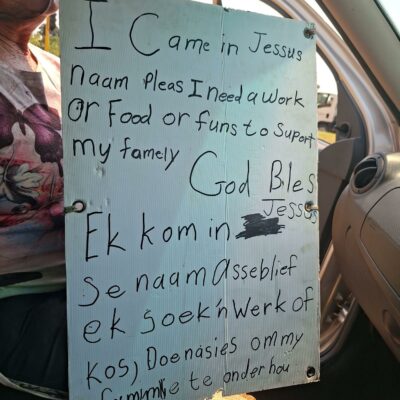 I Came in Jessus
naam Pleas I need a work
or Food or funs to Suport
my famely
God Bles
Jessus
Ek kom in
se naam Asseblief
ek soek 'n Werk of
Kos, Doenasies om my
te onderhou